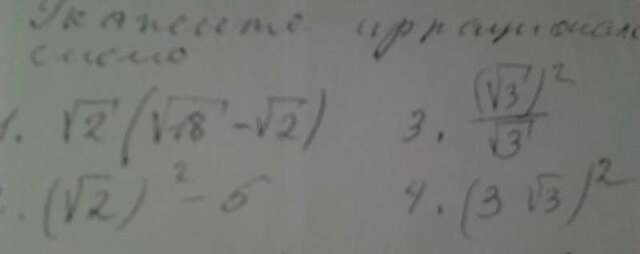 Укажите иррационал
число
1. √2 (√18 - √2)
3. (√3)² / √3
2. (√2)² - 5
4. (3 √3)²